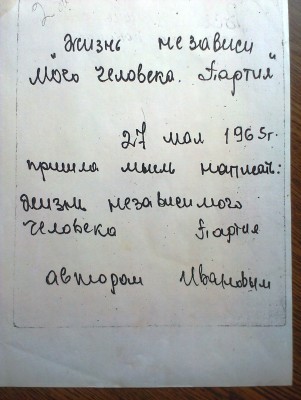 "Жизнь независи
мого человека. Партия"
27 мая 1965г.
пришла мысль написать:
жизнь независимого
человека Партия
автором Ивановым